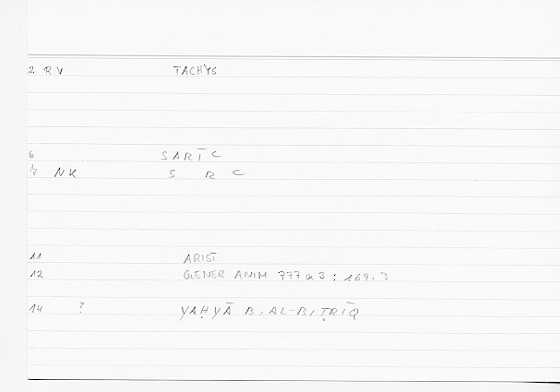 2 R V TACHYS
6 SARĪC
7 NK S R C
11 ARIST
12 GENER ANIM 777 a 3 ; 169.3
14 ? YAḤYĀ B. AL-BIṬRĪQ